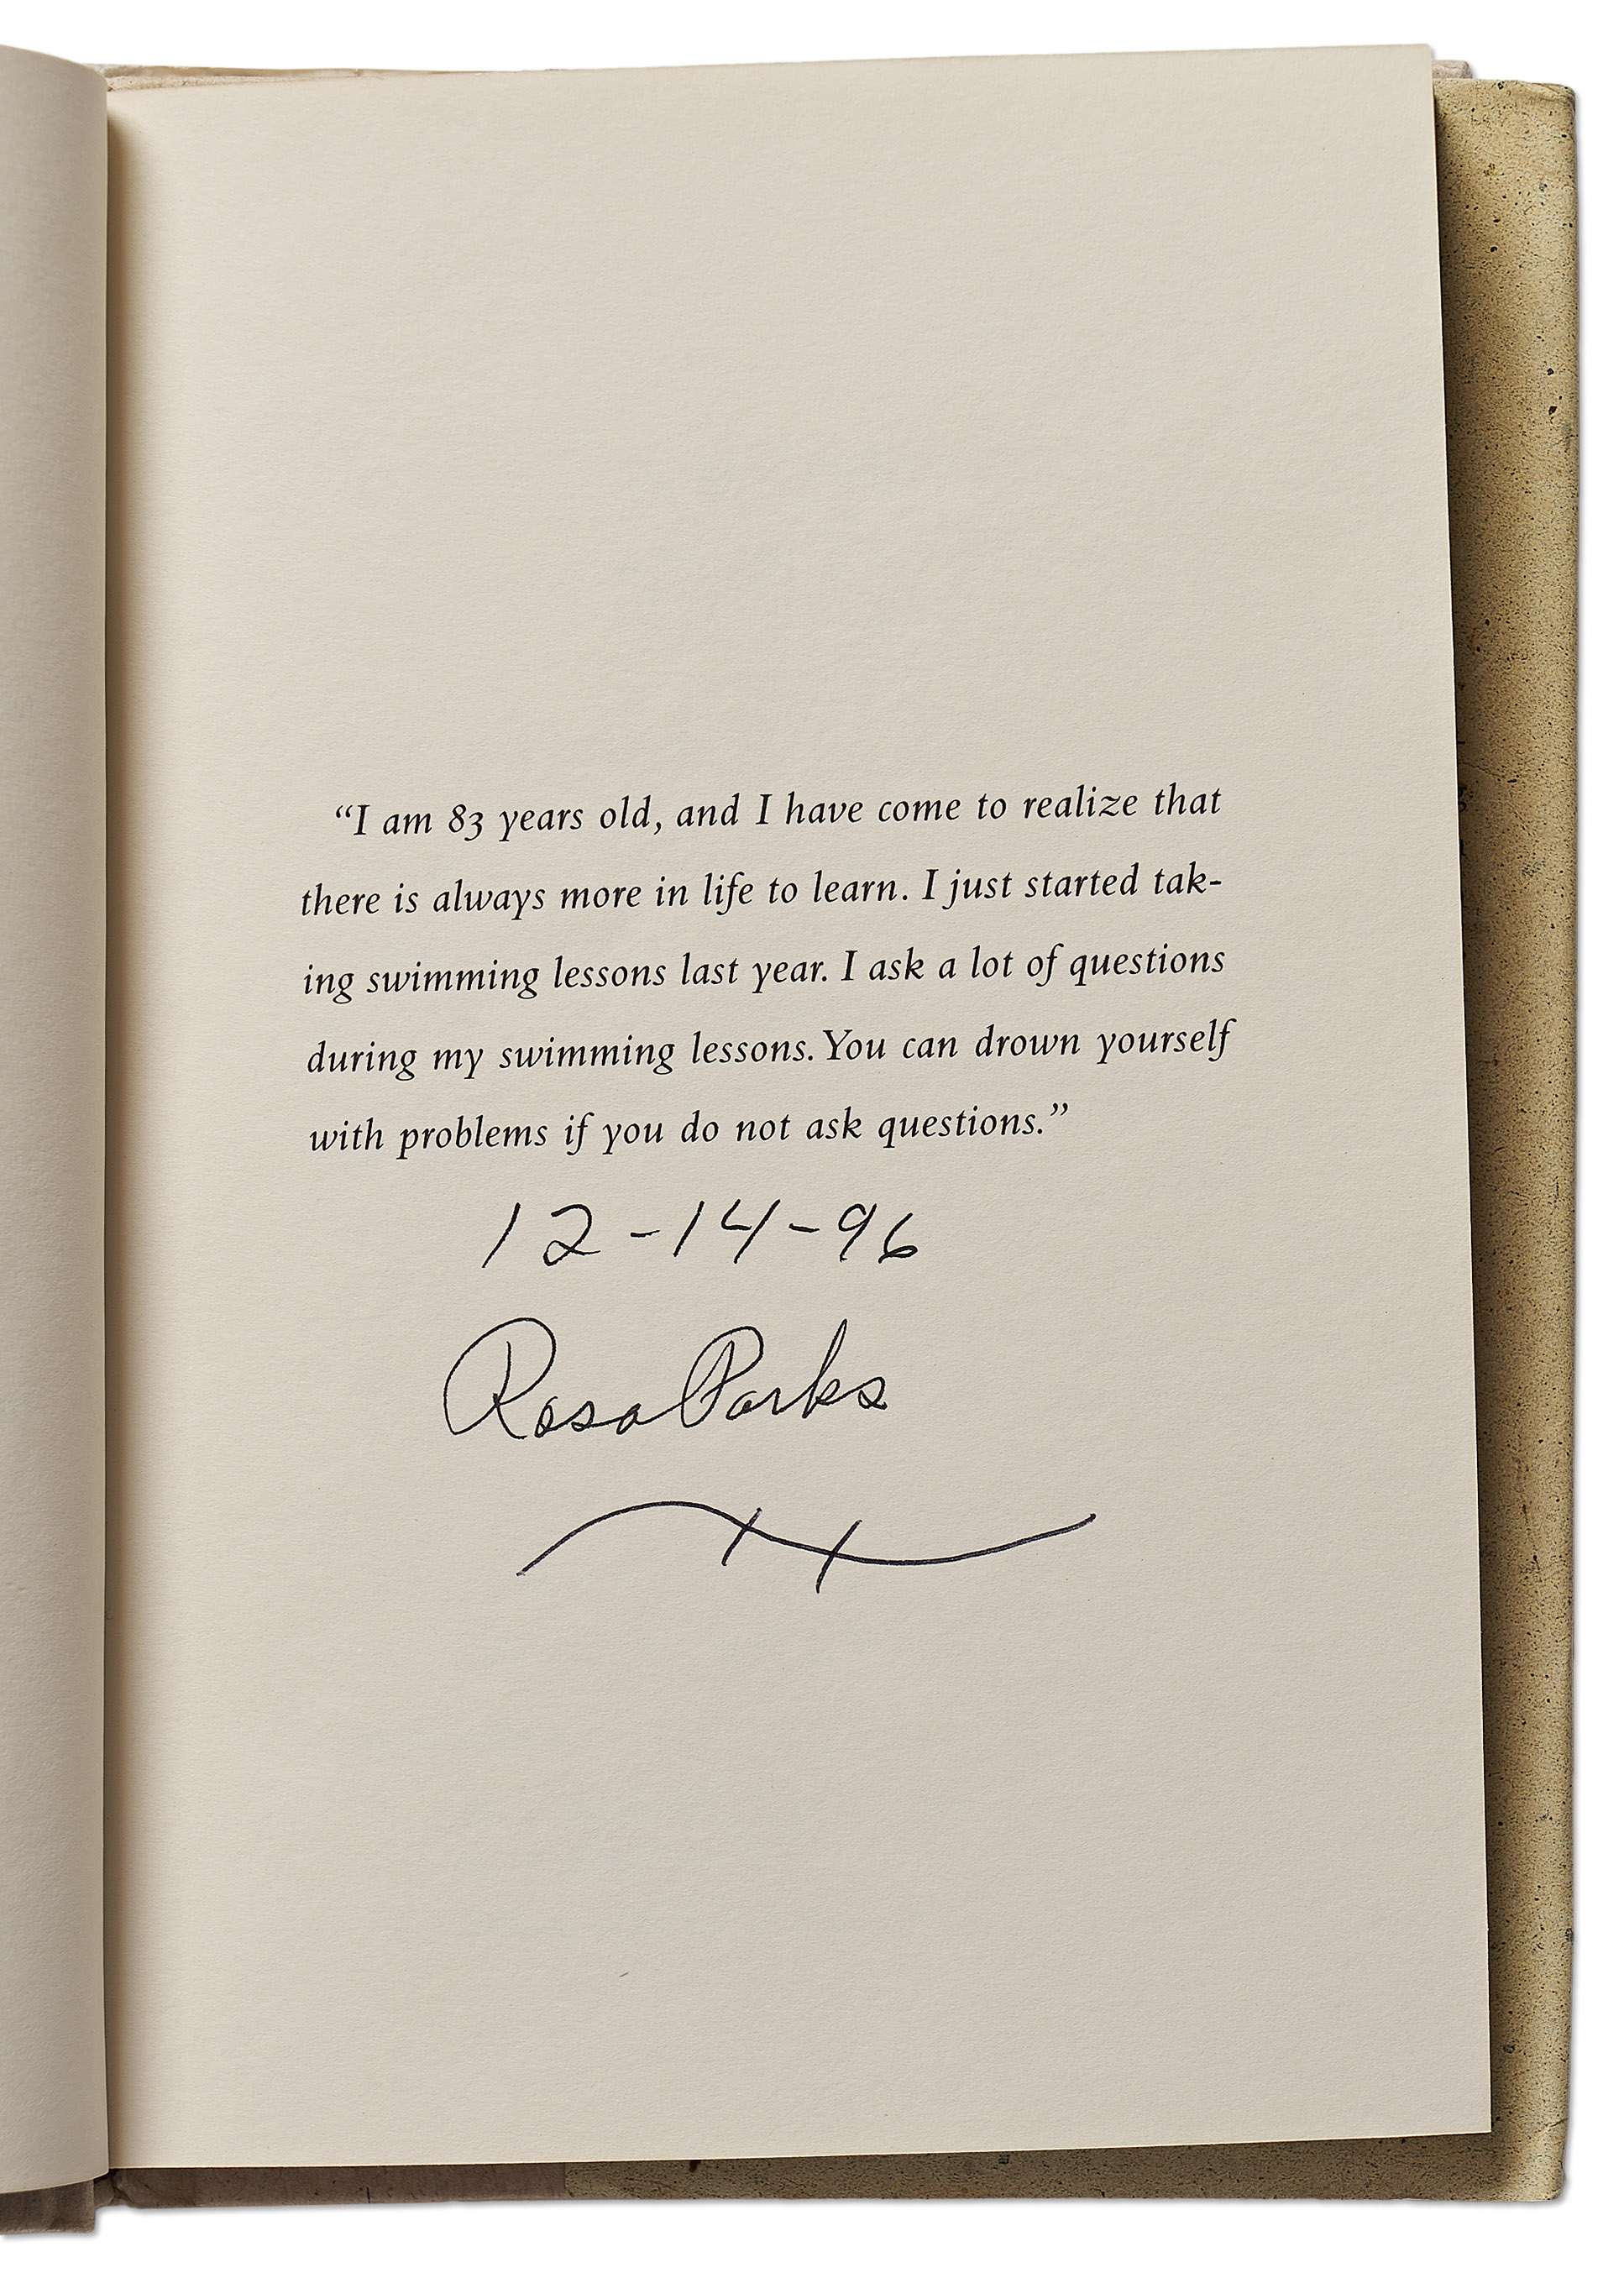 “I am 83 years old, and I have come to realize that
there is always more in life to learn. I just started tak-
ing swimming lessons last year. I ask a lot of questions
during my swimming lessons. You can drown yourself
with problems if you do not ask questions.”
12-14-96
Rosa Parks